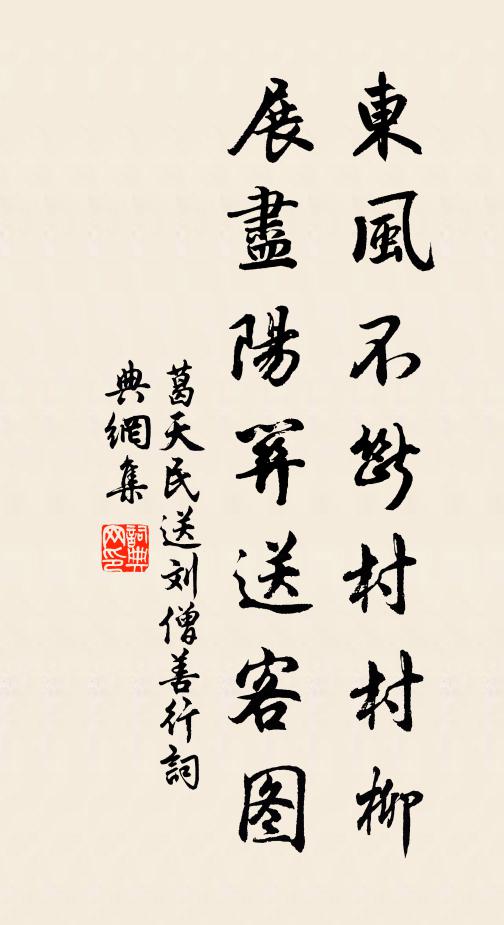 東風不斷村村柳
展盡陽関送客图
葛天民送刘僧善行詞
典網集
詞典
网印